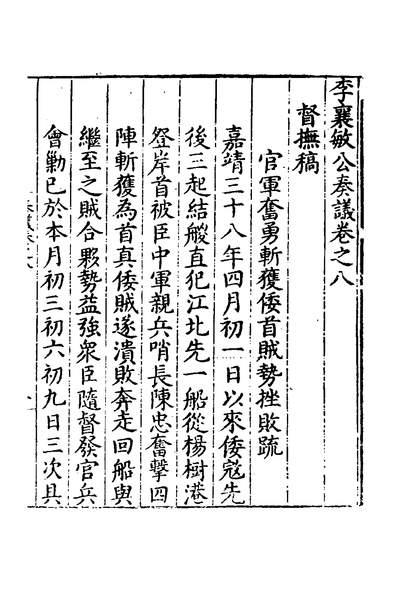 李襄敏公奏議卷之八
督撫稿
官軍奮勇斬獲倭首賊勢挫敗疏
嘉靖三十八年四月初一日以來倭寇先
後三起結䑸直犯江北先一船從楊樹港
登岸首被臣中軍親兵哨長陳忠奮擊四
陣斬獲為首真倭賊遂潰敗奔走回船與
繼至之賊合夥勢益強衆臣隨督發官兵
會勦已於本月初三初六初九日三次具